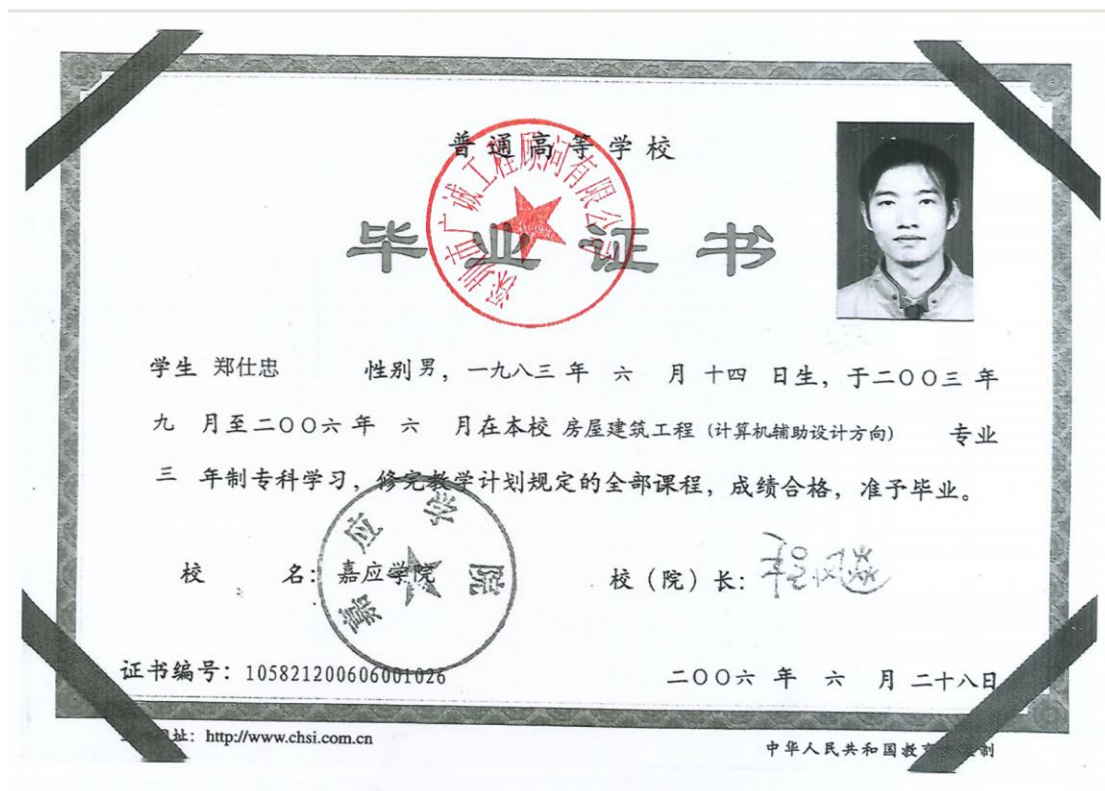 普通高等学校
毕业证书
深圳市广诚工程顾问有限公司
学生 郑仕忠 性别 男，一九八三 年 六 月 十四 日生，于二〇〇三 年
九 月至二〇〇六 年 六 月在本校 房屋建筑工程（计算机辅助设计方向） 专业
三 年制专科学习，修完教学计划规定的全部课程，成绩合格，准予毕业。
校 名：嘉应学院 校（院）长：
嘉应学院
证书编号：105821200606001026 二〇〇六 年 六 月 二十八日
址：http://www.chsi.com.cn 中华人民共和国教 制